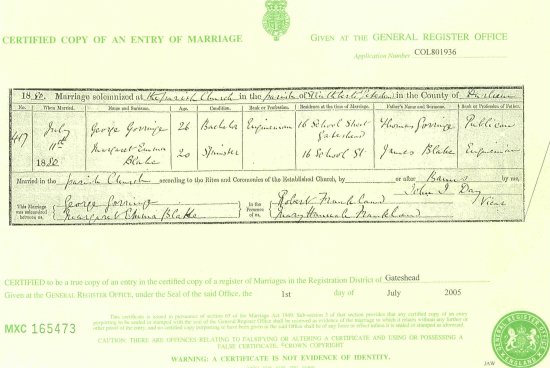 CERTIFIED COPY OF AN ENTRY OF MARRIAGE
GIVEN AT THE GENERAL REGISTER OFFICE
Application Number COL801936
1880. Marriage solemnized at the Parish Church in the Parish of in the County of Durham
No. When Married. Name and Surname. Age. Condition. Rank or Profession. Residence at the time of Marriage. Father's Name and Surname. Rank or Profession of Father.
417 July 11th 1880
George Gorringe 26 Bachelor Engineman 16 School Street Gateshead Thomas Gorringe Publican
Margaret Emma Blake 20 Spinster 16 School St James Blake Engineman
Married in the Parish Church according to the Rites and Ceremonies of the Established Church, by or after Banns by me,
John I. Day Vicar
This Marriage was solemnized between us, George Gorringe Margaret Emma Blake
in the Presence of us, Robert Frankland Mary Hannah Frankland
CERTIFIED to be a true copy of an entry in the certified copy of a register of Marriages in the Registration District of Gateshead
Given at the GENERAL REGISTER OFFICE, under the Seal of the said Office, the 1st day of July 2005
MXC 165473
CAUTION: THERE ARE OFFENCES RELATING TO FALSIFYING OR ALTERING A CERTIFICATE AND USING OR POSSESSING A FALSE CERTIFICATE. ©CROWN COPYRIGHT
WARNING: A CERTIFICATE IS NOT EVIDENCE OF IDENTITY.
GENERAL REGISTER OFFICE
ENGLAND
JAW